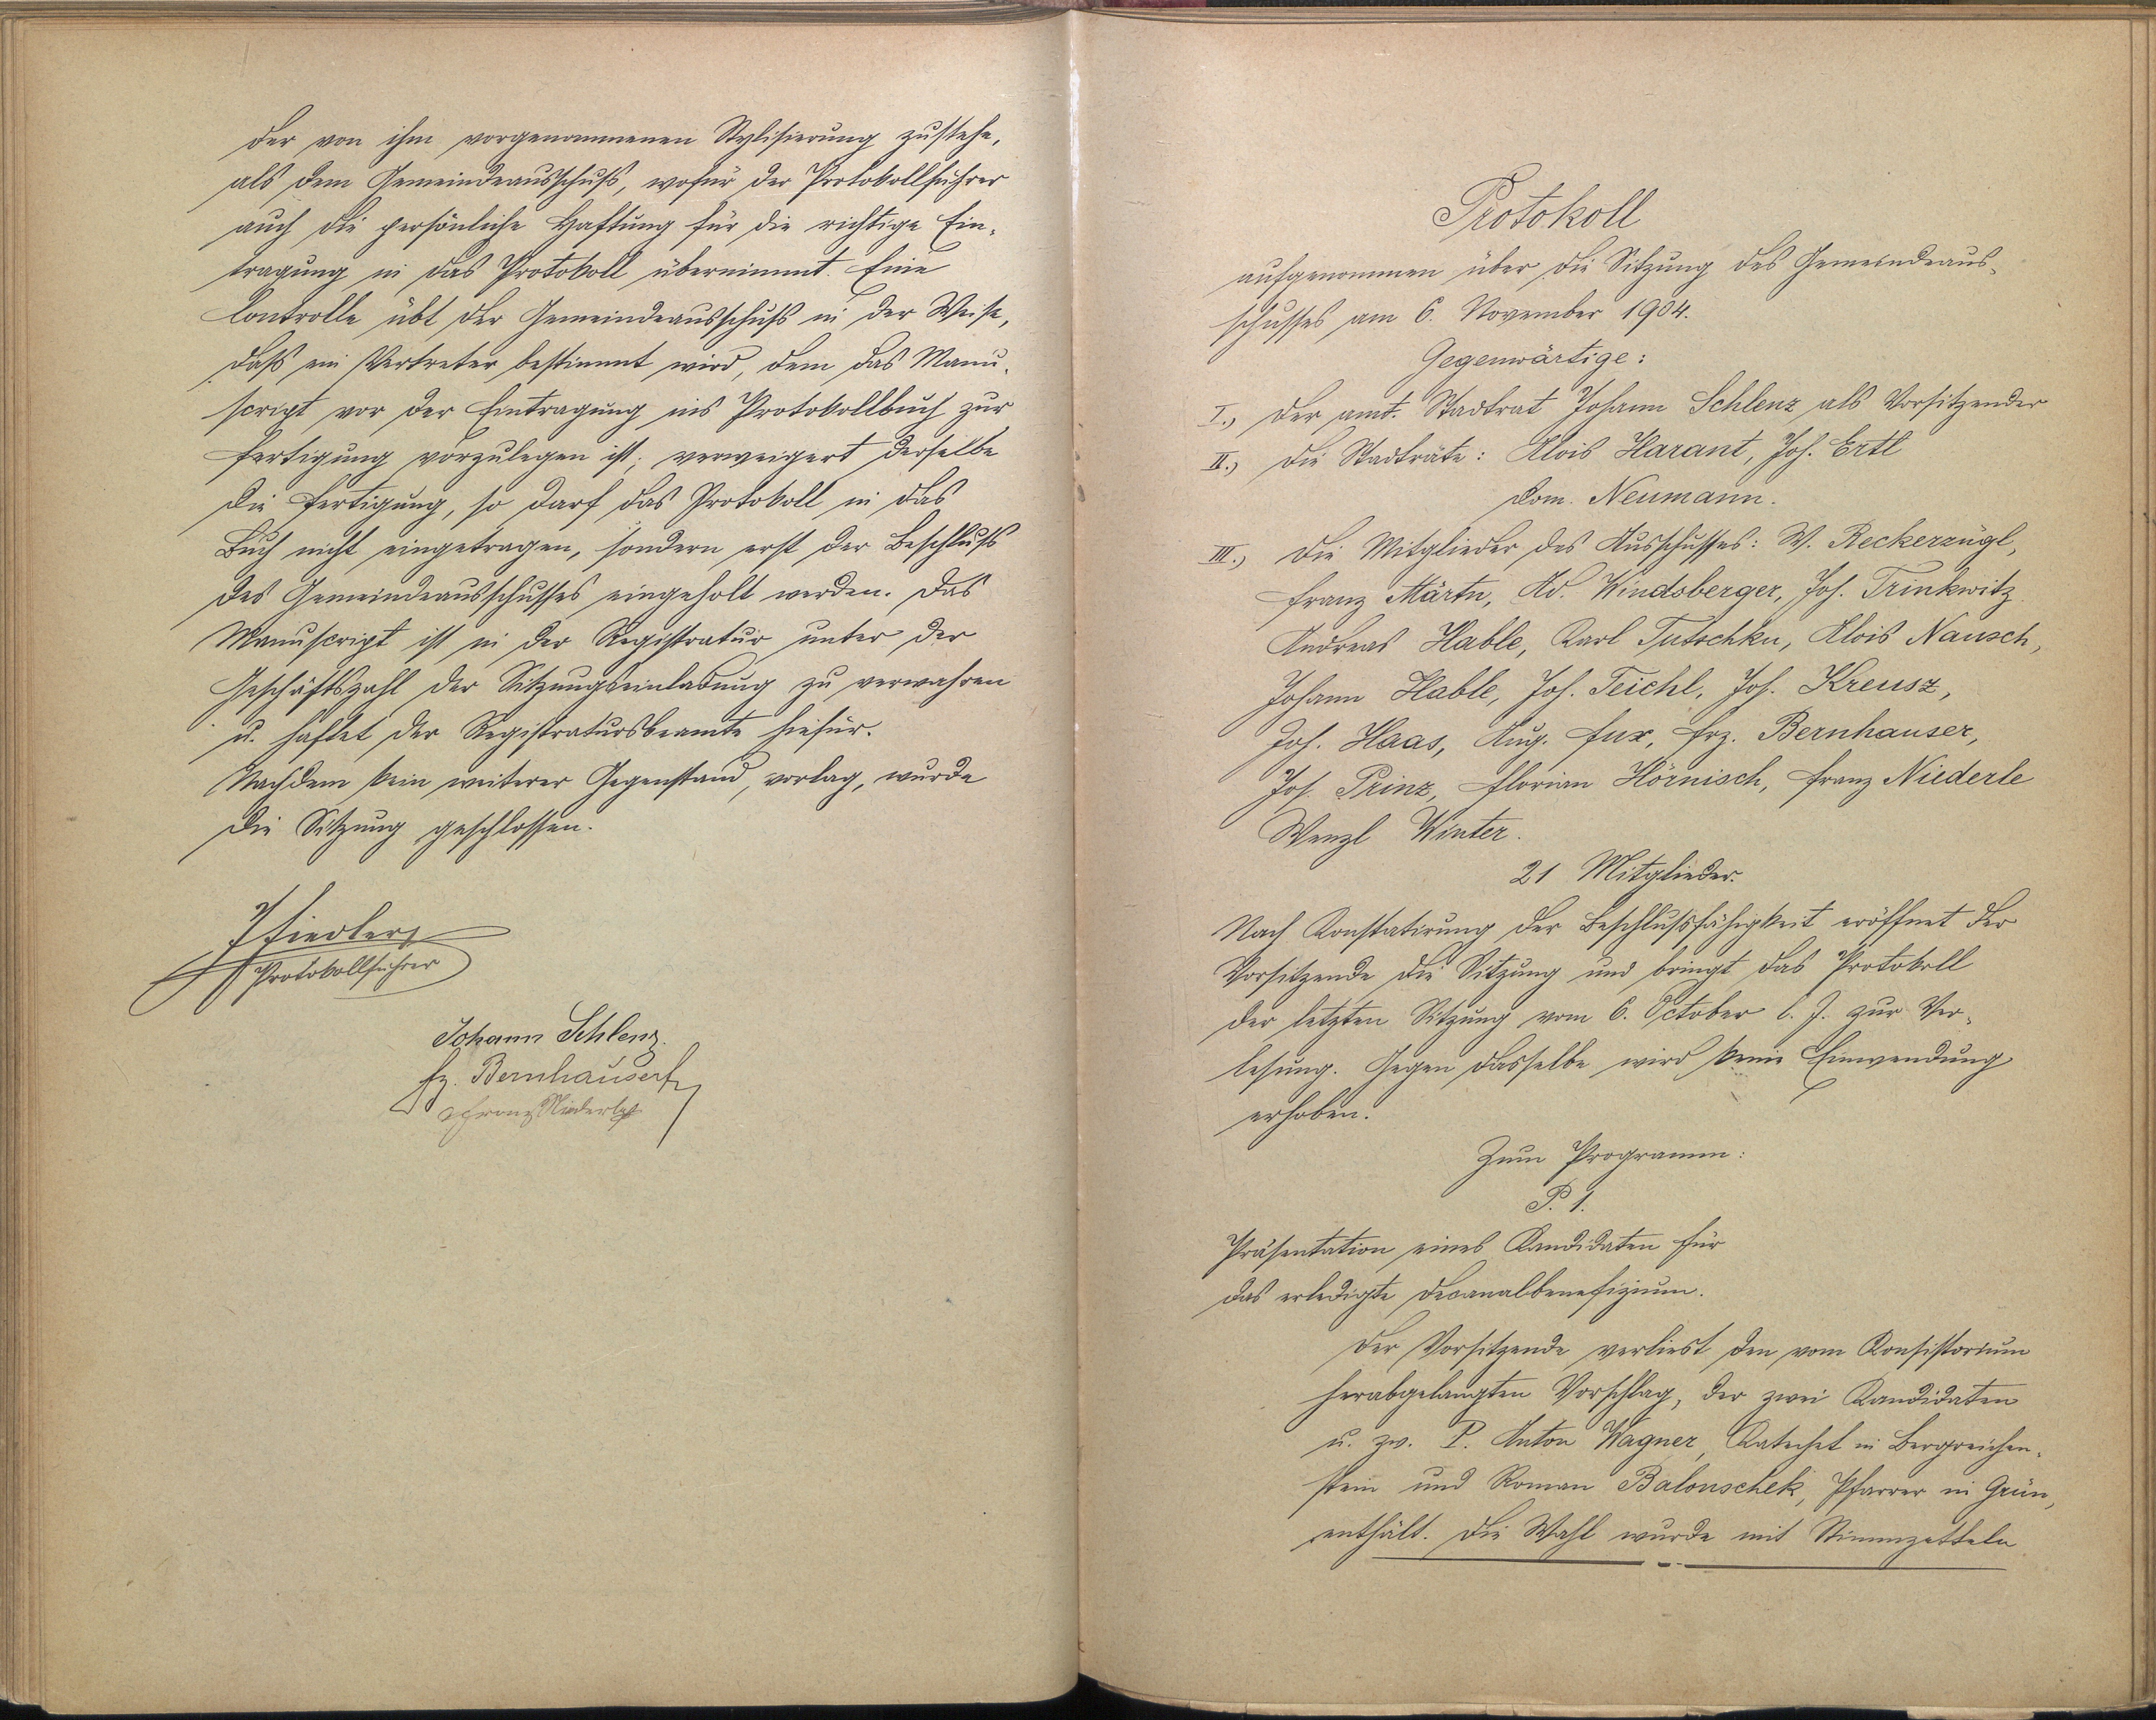 der von ihm vorgenommenen Stylisierung zustehe,
als dem Gemeindeausschuß, wofür der Protokollführer
auch die persönliche Haftung für die richtige Ein-
tragung in das Protokoll übernimmt. Eine
Controlle übt der Gemeindeausschuß in der Weise,
daß ein Vertreter bestimmt wird, dem das Manu-
script vor der Eintragung ins Protokollbuch zur
Fertigung vorzulegen ist; verweigert derselbe
die Fertigung, so darf das Protokoll in das
Buch nicht eingetragen, sondern erst der Beschluß
des Gemeindeausschusses eingeholt werden. Das
Manuscript ist in der Registratur unter der
Geschäftszahl der Sitzungseinladung zu verwahren
u. haftet der Registratursbeamte hiefür.
Nachdem kein weiterer Gegenstand vorlag, wurde
die Sitzung geschlossen.
Fiedler
Protokollführer
Johann Schlenz.
Fz. Bernhauser
Franz Niederle
Protokoll
aufgenommen über die Sitzung des Gemeindeaus-
schusses am 6. November 1904.
Gegenwärtige:
I.) Der amt. Stadtrat Johann Schlenz als Vorsitzender
II.) Die Stadträte: Alois Harant, Jos. Ertl
Dom. Neumann.
III.) Die Mitglieder des Ausschusses: W. Reckerzügl,
Franz Märtn, Ad. Windsberger, Jos. Trinkwitz
Andreas Hable, Karl Tutschku, Alois Nausch,
Johann Hable, Jos. Teichl, Jos. Kreusz,
Jos. Haas, Aug. Fux, Frz. Bernhauser,
Jos. Prinz, Florian Hörnisch, Franz Niederle
Wenzl Winter.
21 Mitglieder.
Nach Konstatirung der Beschlußfähigkeit eröffnet der
Vorsitzende die Sitzung und bringt das Protokoll
der letzten Sitzung vom 6. October l. J. zur Ver-
lesung. Gegen dasselbe wird keine Einwendung
erhoben.
Zum Programm:
P. 1.
Präsentation eines Kandidaten für
das erledigte Decanalbenefizium.
Der Vorsitzende verliest den vom Konsistorium
herabgelangten Vorschlag, der zwei Kandidaten
u. zw. P. Anton Wagner, Katechet in Bergreichen-
stein und Roman Balouschek, Pfarrer in Grün,
enthält. Die Wahl wurde mit Stimmzetteln